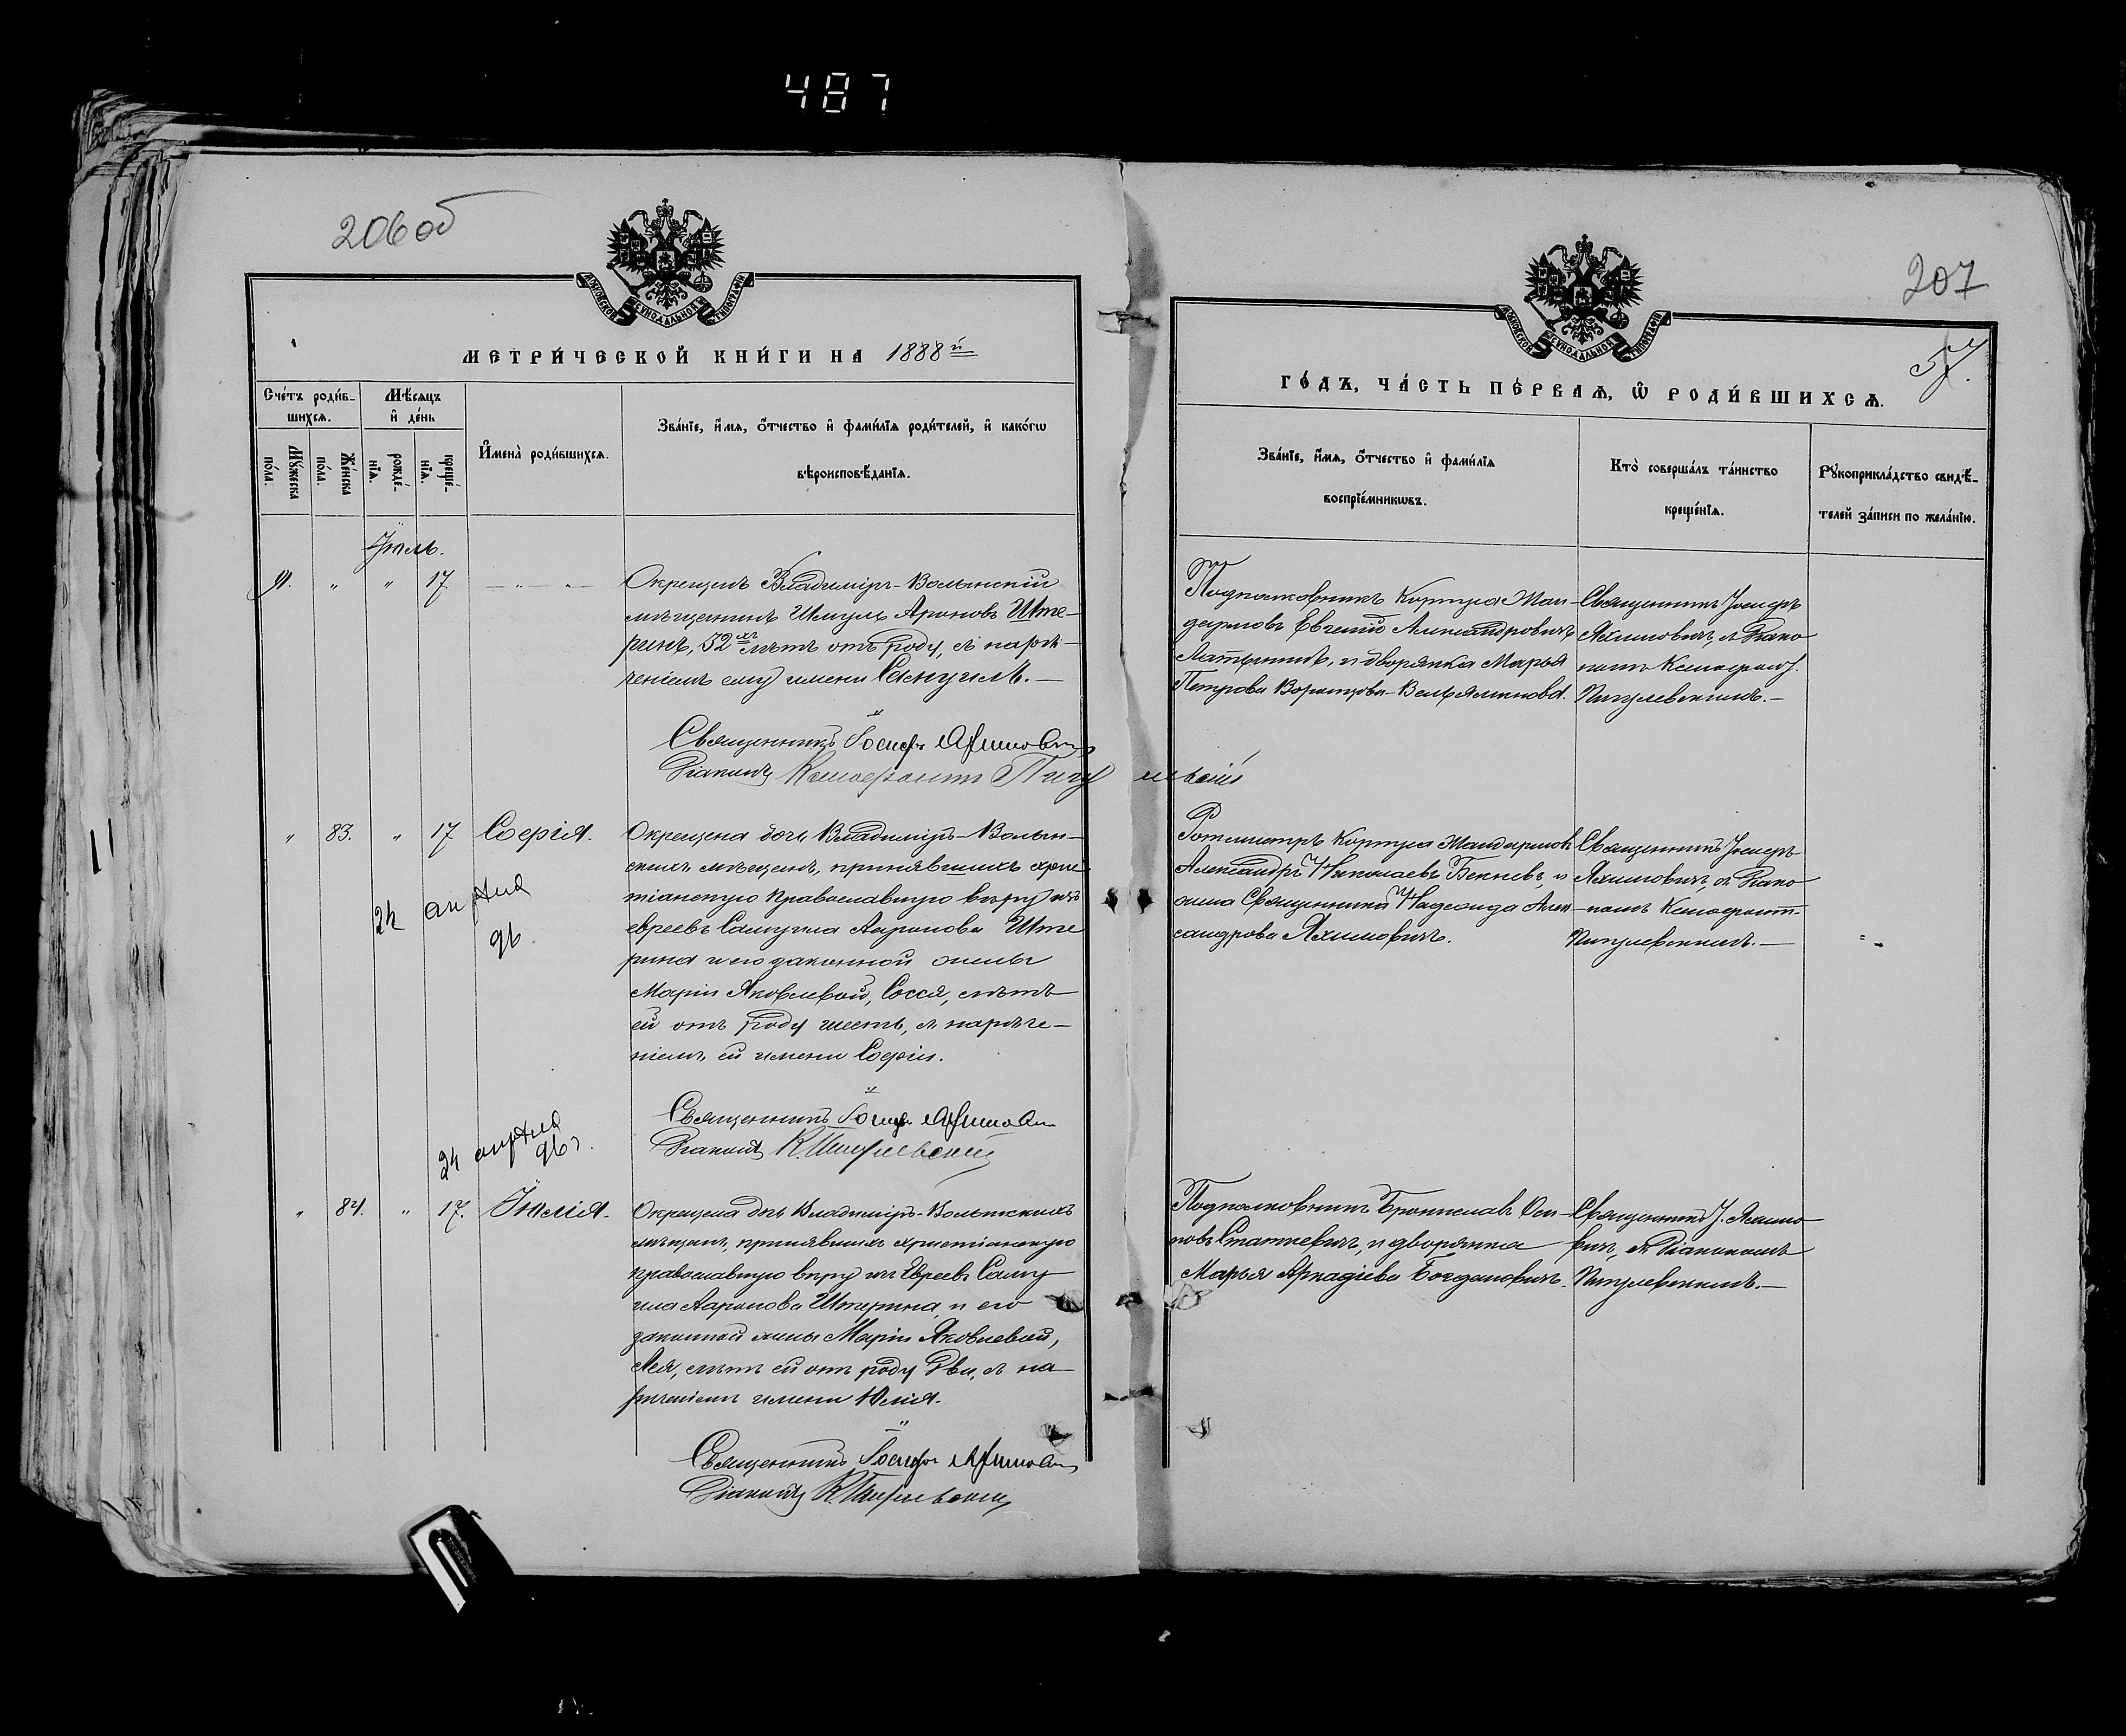 487
206 об
МОСКОВСКОЙ СѴНОДАЛЬНОЙ ТИПОГРАФІИ
МЕТРИ́ЧЕСКОЙ КНИ́ГИ НА 1888й
Сче́тъ роди́в-
шихсѧ.
Мѣ́сѧцъ
и҆ де́нь
И҆мена̀ роди́вшихсѧ.
Зва́нїе, и҆́мѧ, ѻ҆́тчество и҆ фами́лїѧ роди́телей, и҆ како́гѡ
вѣроисповѣ́данїѧ.
Мꙋ́жеска
по́ла.
Же́нска
по́ла.
рожде́-
нїѧ.
креще́-
нїѧ.
Іюль.
„ „ 17. — „ — „
Окрещенъ Владиміръ-Волынскій
мѣщанинъ Шмуль Ароновъ Ште-
ринъ, 52хъ лѣтъ отъ роду, съ нарѣ-
ченіемъ ему имени Самуилъ.—
Священникъ Іосифъ Яхимовичъ
Діаконъ Ксенофонтъ Пигулевскій
„ 83. „ 17 Софія.
Окрещена дочь Владиміръ-Волын-
скихъ мѣщанъ, принявшихъ хрис
тіанскую православную вѣру изъ
евреевъ Самуила Ааронова Ште
рина и его законной жены
Маріи Яковлевой, Сося, лѣтъ
ей отъ роду шесть, съ нарѣче-
ніемъ ей имени Софіи.
24 апрѣля
96.
Священникъ Іосифъ Яхимовичъ
Діаконъ К. Пигулевскій
24 апрѣля
96 г.
„ 84. „ 17. Іюлія.
Окрещена дочь Владиміръ-Волынскихъ
мѣщанъ, принявшихъ христіанскую
православную вѣру изъ Евреевъ Саму
ила Ааронова Штерина, и его
законной жены Маріи Яковлевой,
Лея, лѣтъ ей отъ роду два, съ на-
реченіемъ имени Юлія.
Священникъ Іосифъ Яхимовичъ
Діаконъ К. Пигулевскій
207
57.
МОСКОВСКОЙ СѴНОДАЛЬНОЙ ТИПОГРАФІИ
ГО́ДЪ, ЧА́СТЬ ПЕ́РВАѦ, Ѡ҆ РОДИ́ВШИХСѦ.
Зва́нїе, и҆́мѧ, ѻ҆́тчество и҆ фами́лїѧ
воспрїе́мникѡвъ.
Кто̀ соверша́лъ та́инство
креще́нїѧ.
Рꙋкоприкла́дство свидѣ́-
телей за́писи по жела́нїю.
Подполковникъ Корпуса Жан-
дармовъ Евгеній Александровичъ
и дворянка Марья
Петрова Воронцова-Вельяминова.
Священникъ Іосифъ
Яхимовичъ, съ Діако
номъ Ксенофонт.
Пигулевскимъ.—
Ротмистръ Корпуса Жандармовъ
Александръ Николаевъ Бекневъ, и
жена Священника Надежда Алек-
сандрова Яхимовичъ.
Священникъ Іосифъ
Яхимовичъ, съ Діако
номъ Ксенофонт.
Пигулевскимъ.—
Подполковникъ Брониславъ Оси-
повъ Станкевичъ, и дворянка
Марья Аркадіева Богдановичъ.
Священникъ І. Яхимо
вичъ, съ Діакономъ
Пигулевскимъ.—